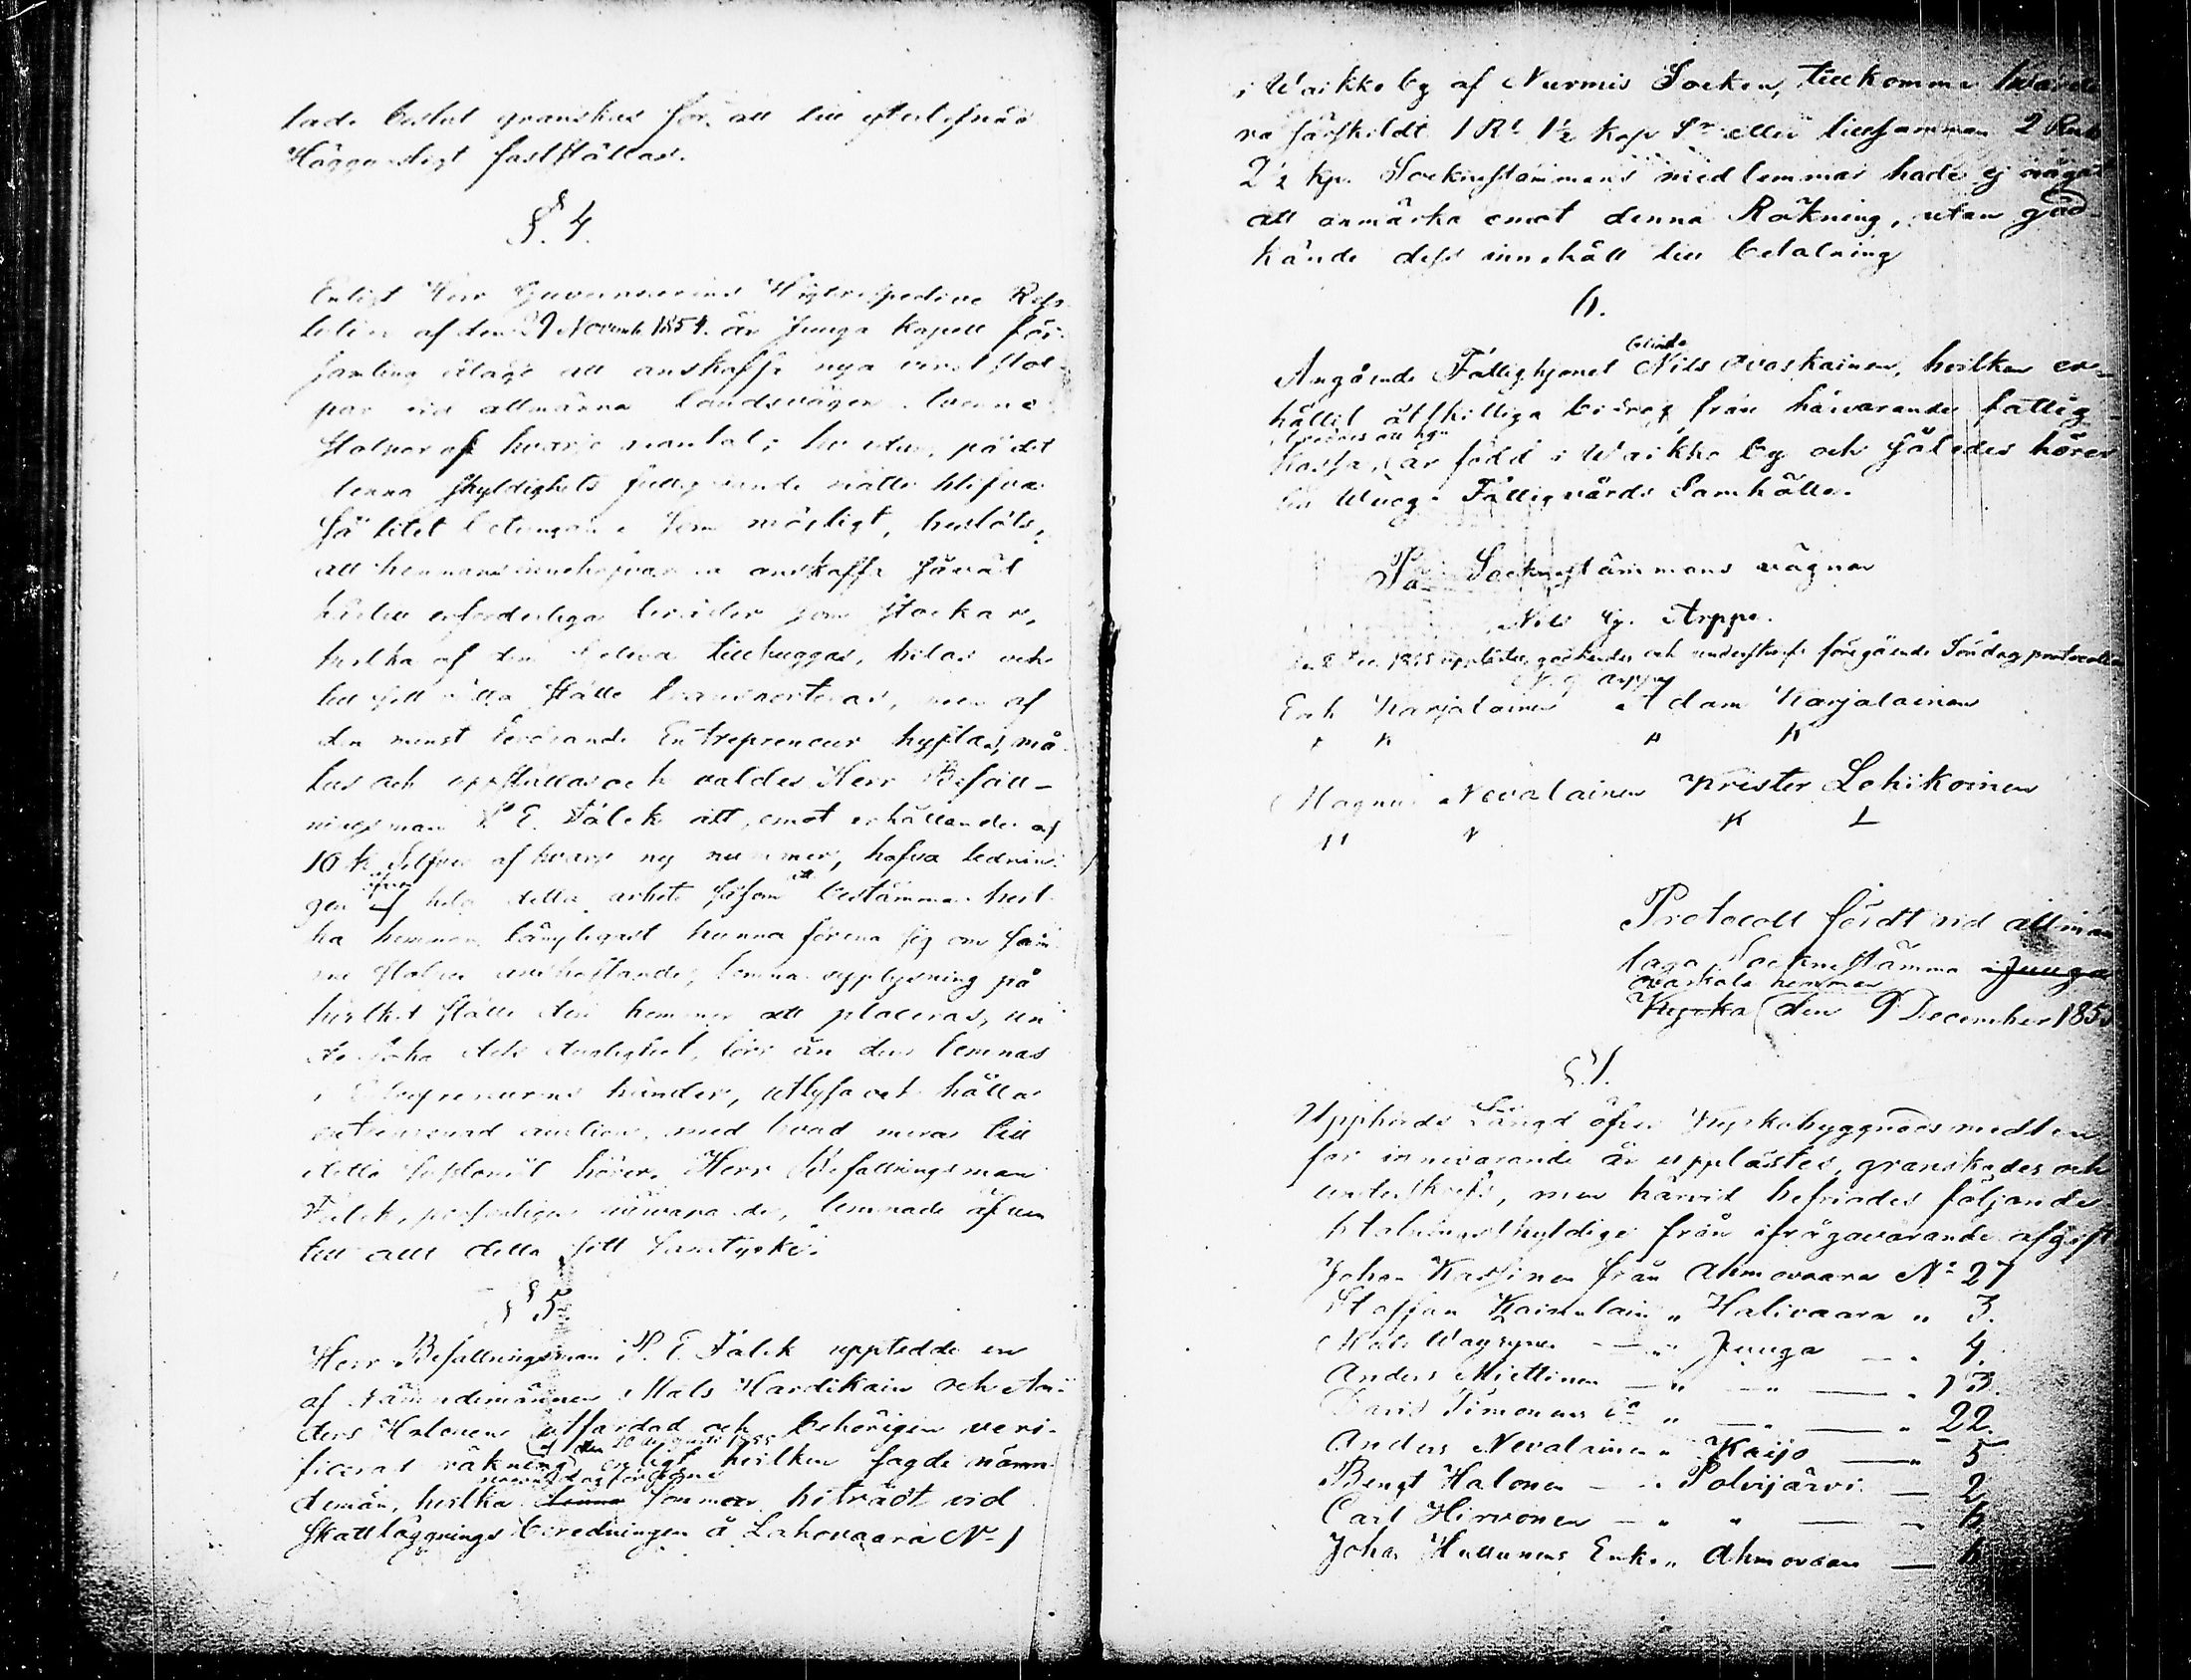 lade beslut granskas för att till efterlefnad
Höggunstigt fastställas.
§. 4.
Enligt Herr Guvernörens Högrespective Reso-
lution af den 29 Novemb 1854. är Juuga Kapell för-
samling ålagt att anskaffa nya verststol-
par vid allmänna landsvägen.
Stolpar af hvarje mantal; på det
denna skyldighets fullgörande måtte blifva
så litet betungande som möjligt, beslöts,
att hemmansinnehafvarena anskaffa såväl
härtill erforderliga bräder som stockar,
hvilka af dem sjelfva tillhuggas, bilas och
till sitt rätta ställe transporteras, men af
den minst fordrande Entrepreneur hyflas, må-
las och uppställas och valdes Herr Befall-
ningsman P. E. Falck att, emot erhållande af
10 k. Silfver af hvarje ny nummer, hafva lednin-
gen öfver hela detta arbete såsom att bestämma hvil-
ka hemman lämpligast kunna förena sig om sam-
ma stolpe anskaffande, lemna upplysning på
hvilket ställe den kommer att placeras, un-
dersöka dess duglighet, förr än den lemnas
i Entreprenörens händer, utlysa och hålla
entreprenad auction, med hvad mera till
detta hörer. Herr Befallningsman
Falck, personligen närvarande, lemnade äfven
till allt detta sitt samtycke.
§ 5
Herr Befallningsman P. E. Falck uppterdde en
af Nämndemännen Mats Hardikain och An-
ders Halonen utfärdad och behörigen veri-
af den 10 Augusti 1855
ficerad räkning, enligt hvilken sagde nämn-
demän, hvilka denna sommar biträdt vid
Skattläggnings beredningen å Lahovaara No 1
i Waikko by af Nurmis Socken, tillkomma hvarde-
ra särskildt 1 Rl 1½ kop Sr eller tillsammans 2 Rub
2½ kp. Sockenstämmans medlemmar hade ej något
att anmärka emot denna Räkning, utan god-
kände dess innehåll till betalning
6.
blinde
Angående Fattighjonet Nils Ovaskainen, hvilken er-
hållit åtskilliga bidrag från härvarande fattig-
kassa, är född i Waikko by och således hörer
till Fattigvårds Samhälle.
På Sockenstämmans vägnar
Nils G. Arppe.
den 2 Dec. 1855 upplästes, godkändes och underskrefs föregående Söndags protocoll
N. G. Arppe
Erik Karjalainen Adam Karjalainen
K A K
Magnus Nevalainen Krister Lohikoinen
M N K L
Protocoll fördt vid allmän
laga Sockenstämma i Juuga
Ovaskala hemman
Kyrka den 9 December 1855
§. 1.
Upphörds Längd öfver Kyrkobyggnads medlen
för innevarande år upplästes, granskades och
underskrefs, men härvid befriades följande
betalningsskyldige från ifrågavarande afgift
Johan Kassinen från Ahmovaara No 27
Staffan Kainulain " Halivaara " 3.
Mats Wäyrynen — " Juuga — " 4.
Anders Miettinen — " — " — " 13.
David Timonens " — " — " 22.
Anders Nevalainen " Kaijo — " 5
Bengt Halonen — " Polvijärvi — 2
Carl Hirvonen — " " — " 6
Johan Hallunens Enka " Ahmovaara — 6